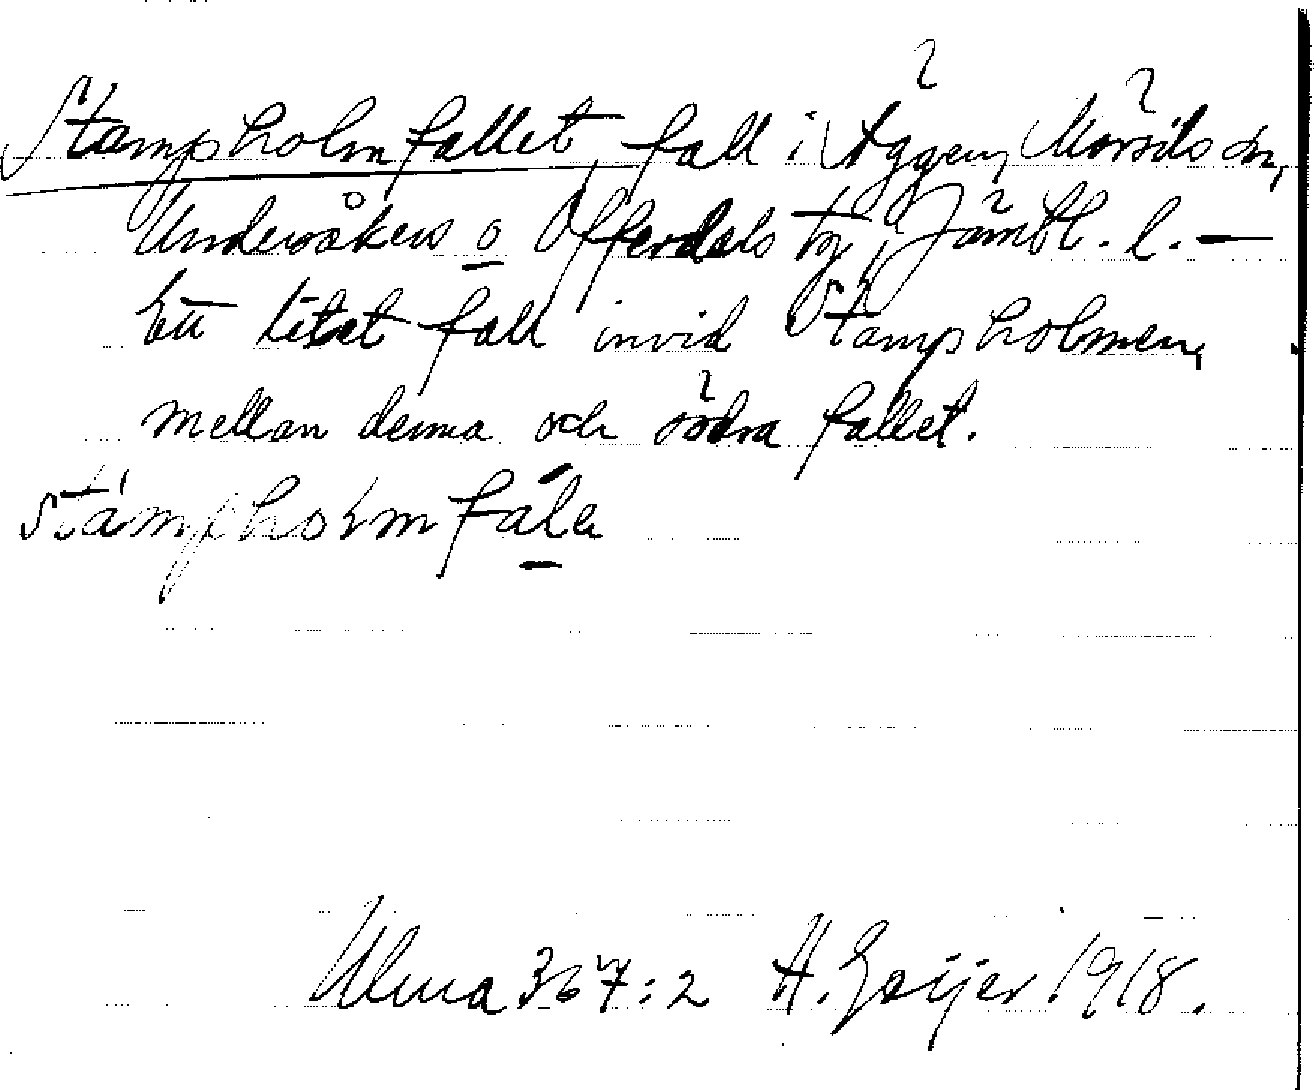 Stampholmfallet, fall i Äggen, Mörsils sn,
Undersåkers o Offerdals tg, Jämtl. l. —
Ett litet fall invid Stampholmen,
mellan denna och södra fallet.
Ulma 367:2 H. Geijer 1918.